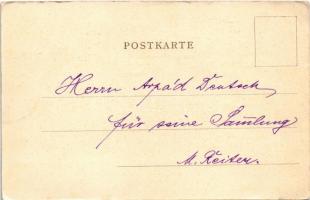 POSTKARTE
Herrn Arpád Deutsch,
für seine Sam̅lung
M. Reiter.